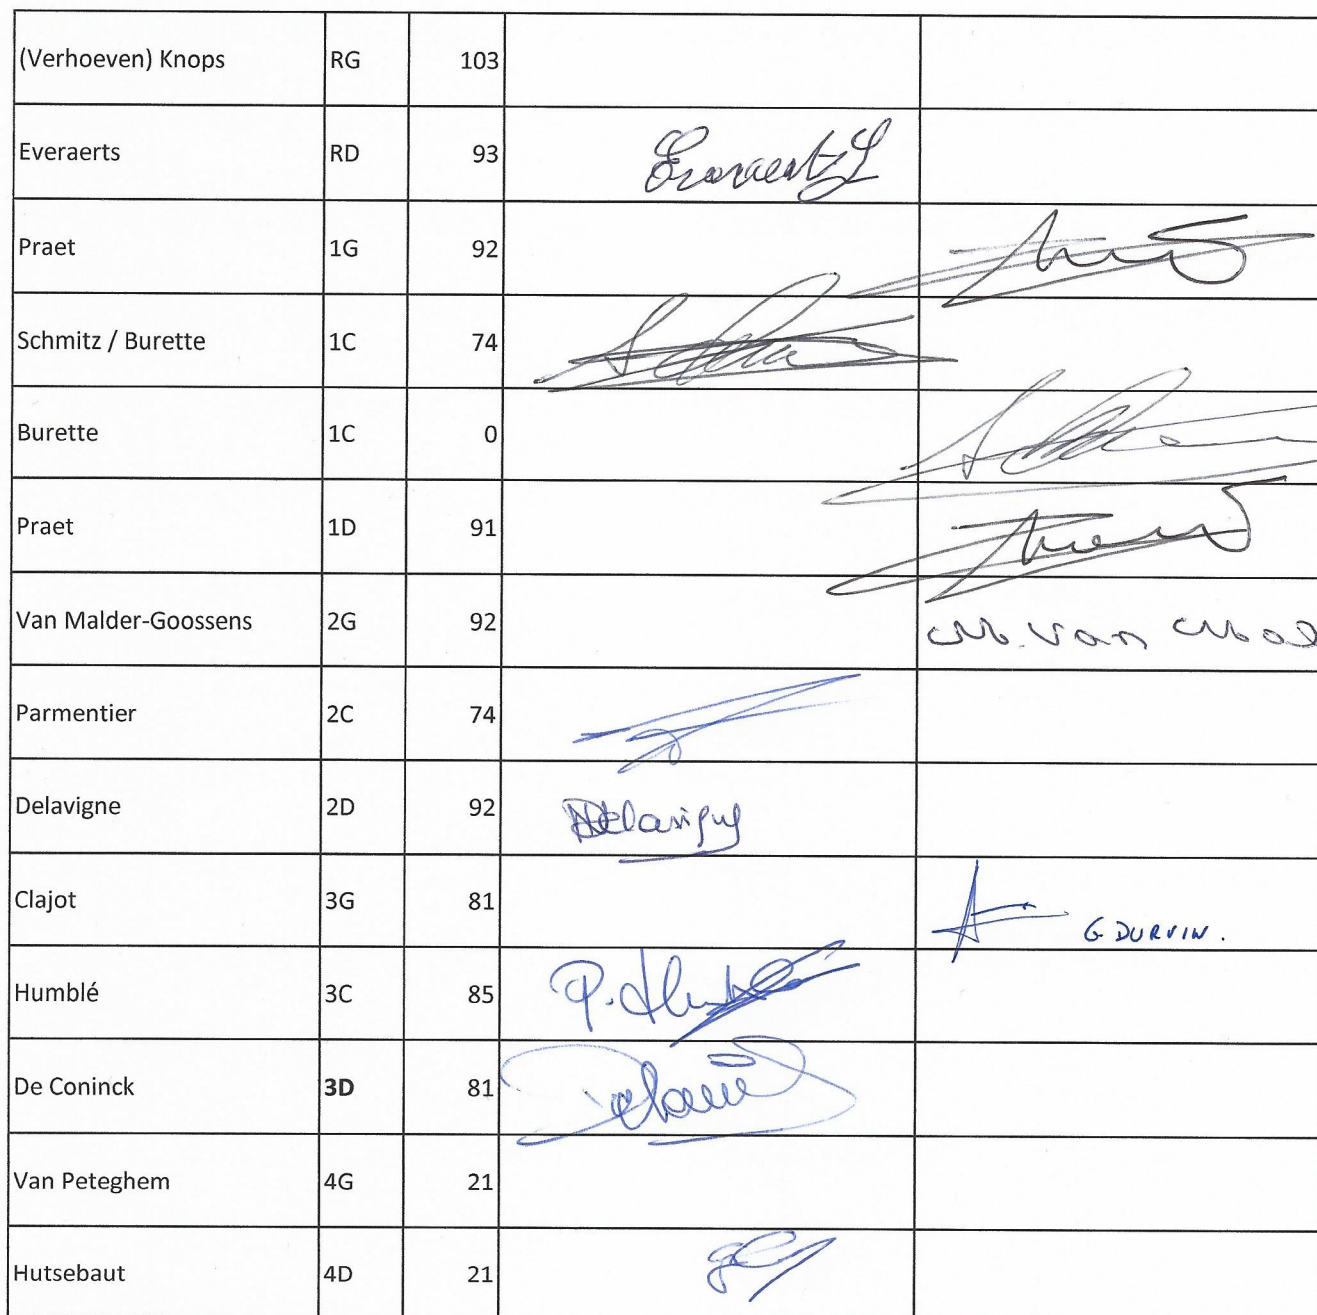 (Verhoeven) Knops RG 103
Everaerts RD 93 Everaerts
Praet 1G 92
Schmitz / Burette 1C 74
Burette 1C 0
Praet 1D 91
Van Malder-Goossens 2G 92 M. Van Mal
Parmentier 2C 74
Delavigne 2D 92 Delavigne
Clajot 3G 81 G DURVIN.
Humblé 3C 85
De Coninck 3D 81
Van Peteghem 4G 21
Hutsebaut 4D 21